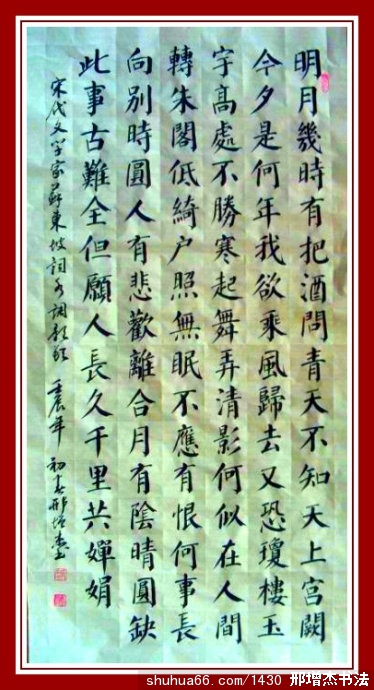 明月幾時有把酒問青天不知天上宮闕
今夕是何年我欲乘風歸去又恐瓊樓玉
宇高處不勝寒起舞弄清影何似在人間
轉朱閣低綺户照無眠不應有恨何事長
向别時圓人有悲歡離合月有陰晴圓缺
此事古難全但願人長久千里共嬋娟
宋代文学家蘇東坡詞水調歌頭 壬辰年 初春邢增杰書
shuhua66.com/1430 邢增杰书法